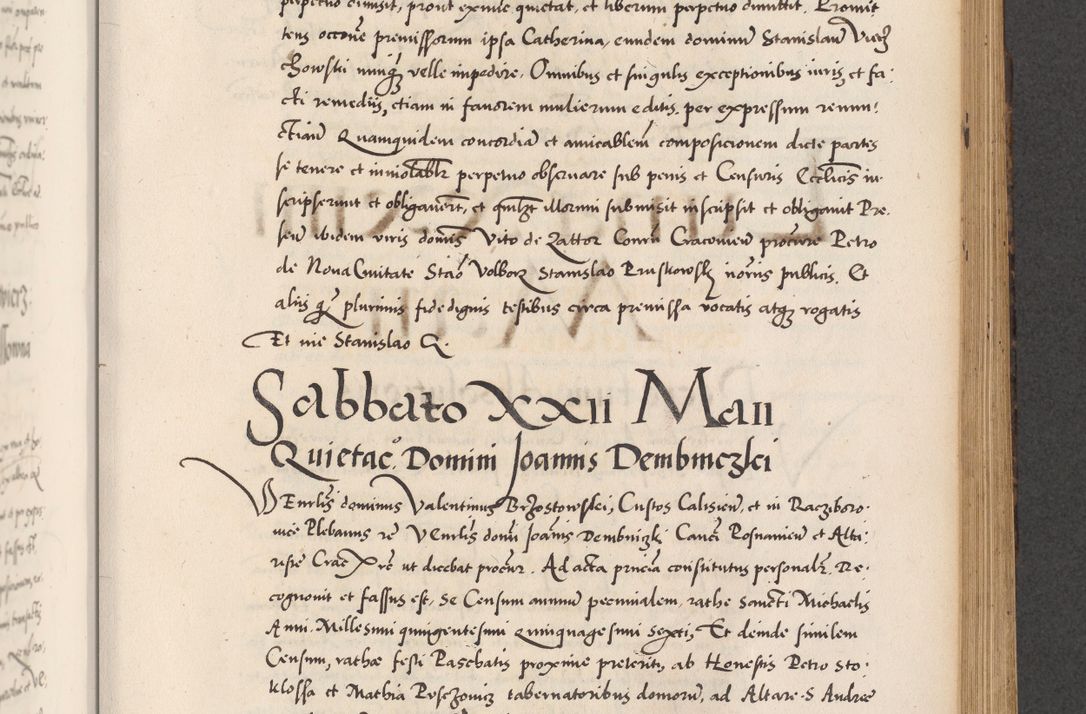 perpetuo dimisit, prout exinde quietat, et liberum perpetuo dimittit. Promit
tens occoē premissorum ipsa Catherina, eundem dominū Stanislaū Viecz
chowski nunqʒ velle impedire. Omnibus et singulis exceptionibus iuris et fa-
cti remediis, etiam in fauorem mulierum editis, per expressum renun:
ctian Quamquidem concordiā et amicabilem composicionem dicte partes
se tenere et inuiolabilr perpetuo obseruare sub penis et Censuris Ecclicis in-
scripserunt et obligauert, et quilibet illorum submisit inscripsit et obligauit Pre-
sen ibidem viris domīs Vito de Zattor Consū Cracouien procure Petro
de Noua Ciuitate Stāo Volborz Stanislao Pruskowsky noriis publicis. Et
aliis qʒ plurimis fidedignis testibus circa premissa vocatis atqʒ rogatis
Et me Stanislao Q.
Sabbato XXII Maii
Quietac. Domini Joannis Dembinczki
VEnrlis dominus Valentinus Brzostowskei, Custos Calisien, et in Racziboro-
uice Plebanus re VEnrlis domi Joannis Dembniczki Canci Posnanien et Alta-
riste Crac Xre ut dicebat procur. Ad acta princia constitutus personalr. Re-
cognouit et fassus est, se Censum annuū pecunialem, rathe Sancti Michaelis
Anni. Millesimi quingentesimi Quinquagesimi Sexti, Et deinde similem
Censum, rathæ festi Paschatis proxime preteriti, ab Honestis Petro Sto-
klossa et Mathia Pyschowicz tabernatoribus domorū, ad Altare S Andree